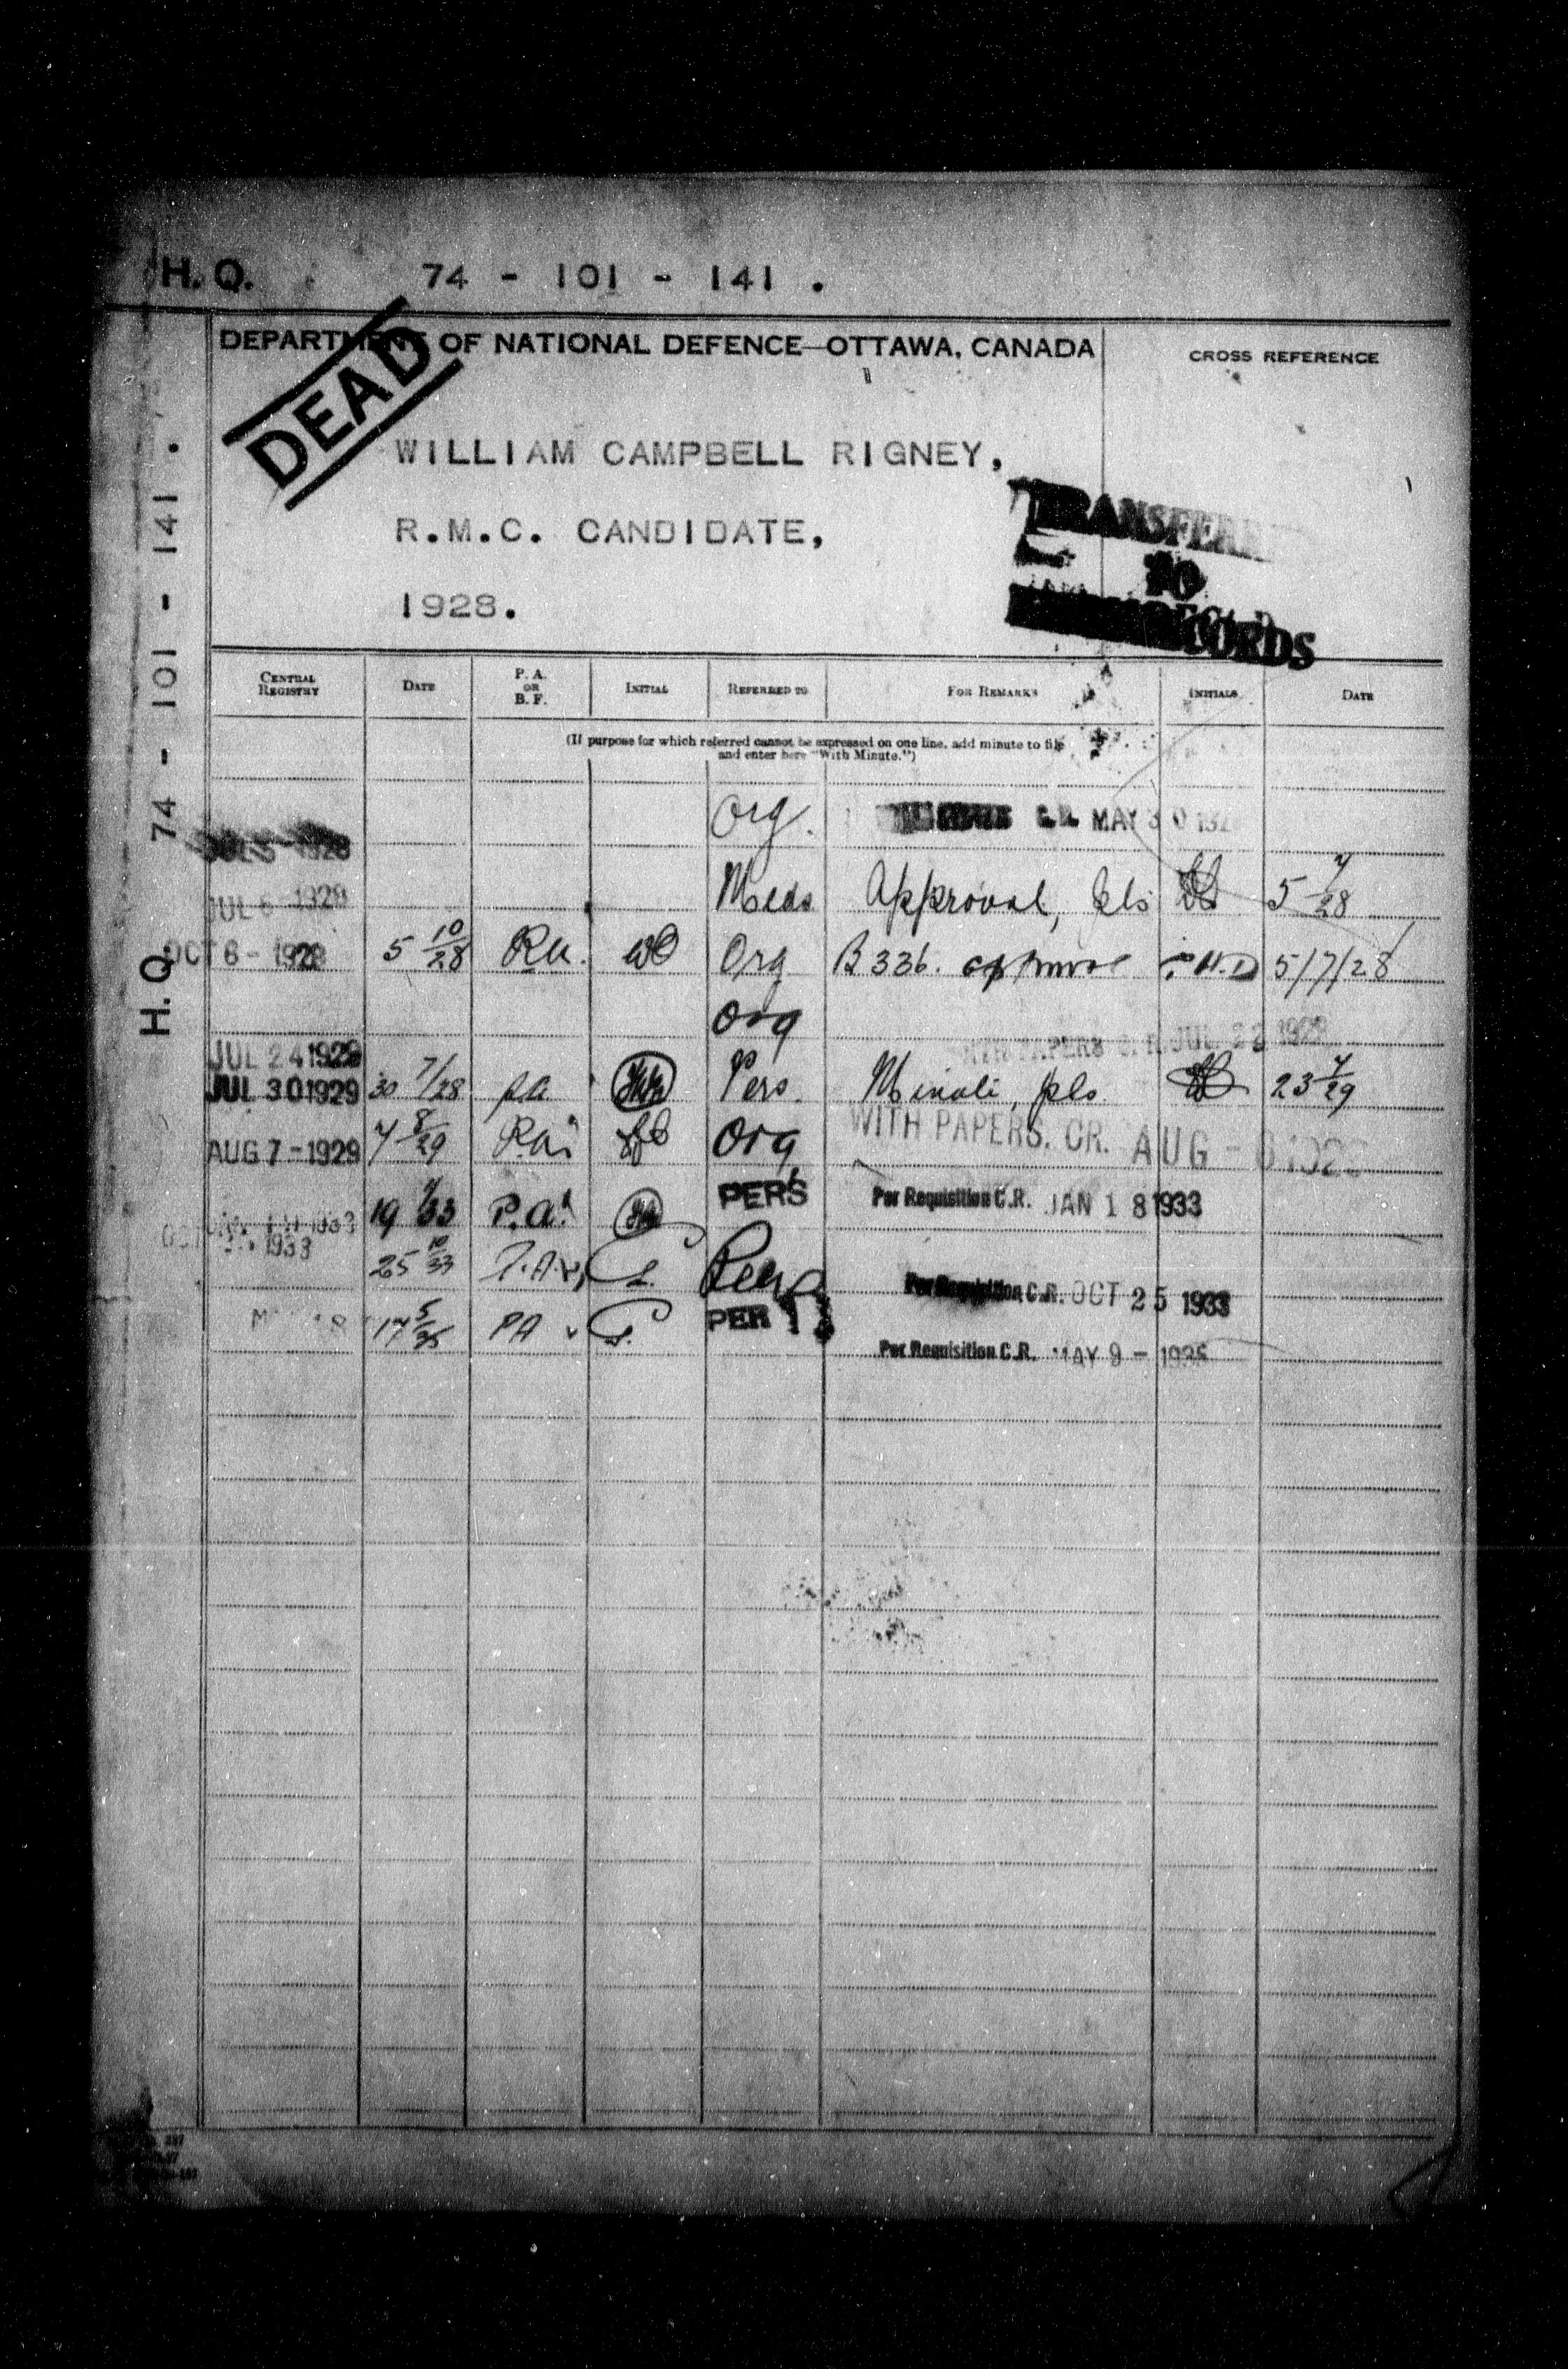 H. Q. 74 - 101 - 141 .
DEPARTMENT OF NATIONAL DEFENCE—OTTAWA, CANADA
CROSS REFERENCE
DEAD
WILLIAM CAMPBELL RIGNEY,
R.M.C. CANDIDATE,
1928.
TO
RECORDS
H. Q. 74 - 101 - 141 .
CENTRAL REGISTRY DATE P. A. OR B. F. INITIAL REFERRED TO FOR REMARKS INITIALS DATE
(If purpose for which referred cannot be expressed on one line, add minute to file
and enter here "With Minute.")
Org. C.R. MAY 30
JUL 5 1928
JUL 6 1928 Meds Approval, pls 5 7/28
OCT 6 - 1928 5 10/28 Org B 336. 5/7/28
Org
JUL 22 1929
JUL 24 1929
JUL 30 1929 30 7/28 Pers. pls 23 7/29
AUG 7 - 1929 7 8/29 Org WITH PAPERS. CR. AUG - 6 192
1933 19 1/33 P.A. PERS Per Requisition C.R. JAN 18 1933
1933 25 10/33 P.A. Per Requisition C.R. OCT 25 1933
17 5/35 PA PER Per Requisition C.R. MAY 9 - 1935